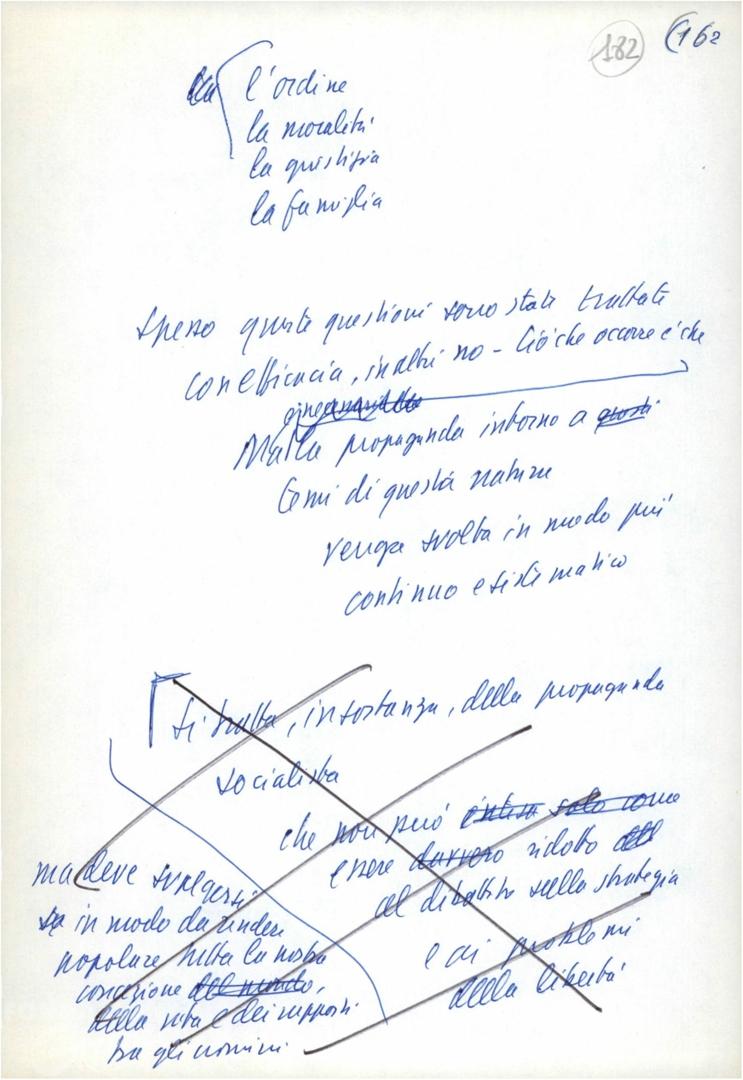 182 (162
l'ordine
la moralità
la giustizia
la famiglia
Spesso queste questioni sono state trattate
con efficacia, in altri no - Ciò che occorre è che
la propaganda intorno a questi
temi di questa natura
venga svolta in modo più
continuo e sistematico
Si tratta, in sostanza, della propaganda
socialista
che non può intesa solo come
essere davvero ridotto
al dibattito sulla strategia
e ai problemi
della libertà
ma deve svolgersi
in modo da rendere
popolare tutta la nostra
concezione del mondo,
della vita e dei rapporti
tra gli uomini